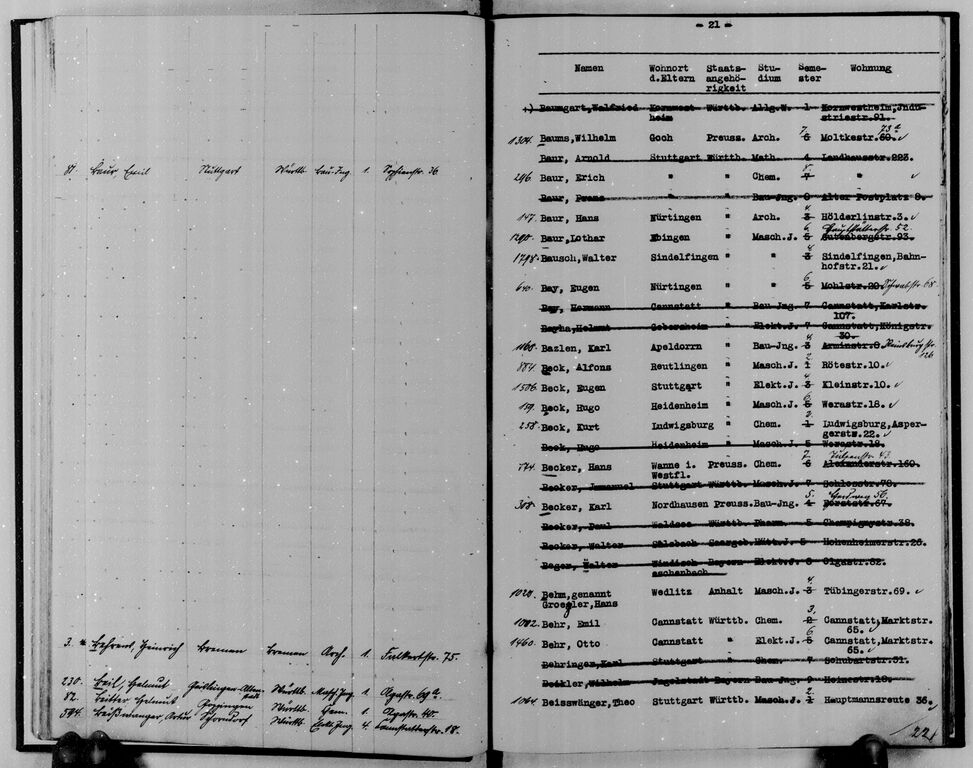 81. Baur, Emil Stuttgart Württb. Bau-Ing 1. Sophienstr. 36
3. * Behrens, Heinrich Bremen Bremen Arch. 1. Falkertstr. 75.
230. Beil, Helmut Geislingen-Altenstadt Württb. Masch. Ing. 1 Olgastr. 69a
82. Helmut Göppingen Württb. 1. Olgastr.
594. Beißwanger, Artur Schorndorf Württb. Elektr. Ing. 4. Cannstatterstr. 18.
- 21 -
Namen Wohnort Staats- Stu- Seme- Wohnung
d.Eltern angehö- dium ster
rigkeit
Baumgart,Walfried Kornwest- Württb. Allg.W. 1 Kornwestheim,Jndu-
heim striestr.91.
73a
1304. Baums,Wilhelm Goch Preuss. Arch. 7 6 Moltkestr.60. ✓
Baur, Arnold Stuttgart Württb. Math. 4 Landhausstr.223.
296. Baur, Erich " " Chem. 8. 7 " ✓
Baur, Franz " " Bau-Jng. 8 Alter Postplatz 8.
147. Baur, Hans Nürtingen " Arch. 4. 3 Hölderlinstr.3. ✓
52.
1290. Baur,Lothar Ebingen " Masch.J. 6. 5 Gutenbergstr.93.
1798. Bausch,Walter Sindelfingen " " 4. 3 Sindelfingen,Bahn-
hofstr.21. ✓
640. Bay, Eugen Nürtingen " " 6. 5 Mohlstr.20. Schwabstr. 68.
Bay, Hermann Cannstatt " Bau-Jng. 7 Cannstatt,Karlstr.
107.
Bayha,Helmut Gebersheim " Elekt.J. 7 Cannstatt,Königstr.
30.
1160. Bazlen, Karl Apeldorrn " Bau-Jng. 4. 3 Arminstr.8. Reinsburgstr.
126
884. Beck, Alfons Reutlingen " Masch.J. 2. 1 Rötestr.10. ✓
1506. Beck, Eugen Stuttgart " Elekt.J. 4. 3 Kleinstr.10. ✓
159. Beck, Hugo Heidenheim " Masch.J. 6. 5 Werastr.18. ✓
258. Beck, Kurt Ludwigsburg " Chem. 2. 1 Ludwigsburg,Asper-
gerstr.22. ✓
Beck, Hugo Heidenheim " Masch.J. 5 Werastr.18.
43.
574. Becker, Hans Wanne i. Preuss. Chem. 7. 6 Alexanderstr.160.
Westfl.
Becker, Jmmanuel Stuttgart Württb. Masch.J. 7 Schlosstr.78.
56.
308. Becker, Karl Nordhausen Preuss. Bau-Jng. 5. 4 Forststr.67.
Becker, Paul Waldsee Württb. Pharm. 5 Champignystr.38.
Becker, Walter Sulzbach Saargeb. Hütt.J. 5 Hohenheimerstr.26.
Beger, Walter Windisch- Bayern Elekt.J. 8 Olgastr.82.
eschenbach
1024. Behm,genannt Wedlitz Anhalt Masch.J. 4. 3 Tübingerstr.69. ✓
Groegler,Hans
1002. Behr, Emil Cannstatt Württb. Chem. 3. 2 Cannstatt,Marktstr.
65. ✓
1460. Behr, Otto Cannstatt " Elekt.J. 6 5 Cannstatt,Marktstr.
65. ✓
Behringer,Karl Stuttgart " Chem. 7 Schubartstr.51.
Beikler,Wilhelm Jagelstatt Bayern Bau-Jng. 9 Heimstr.18.
1061 Beisswänger,Theo Stuttgart Württb. Masch.J. 2. 1 Hauptmannsreute 36. ✓
22